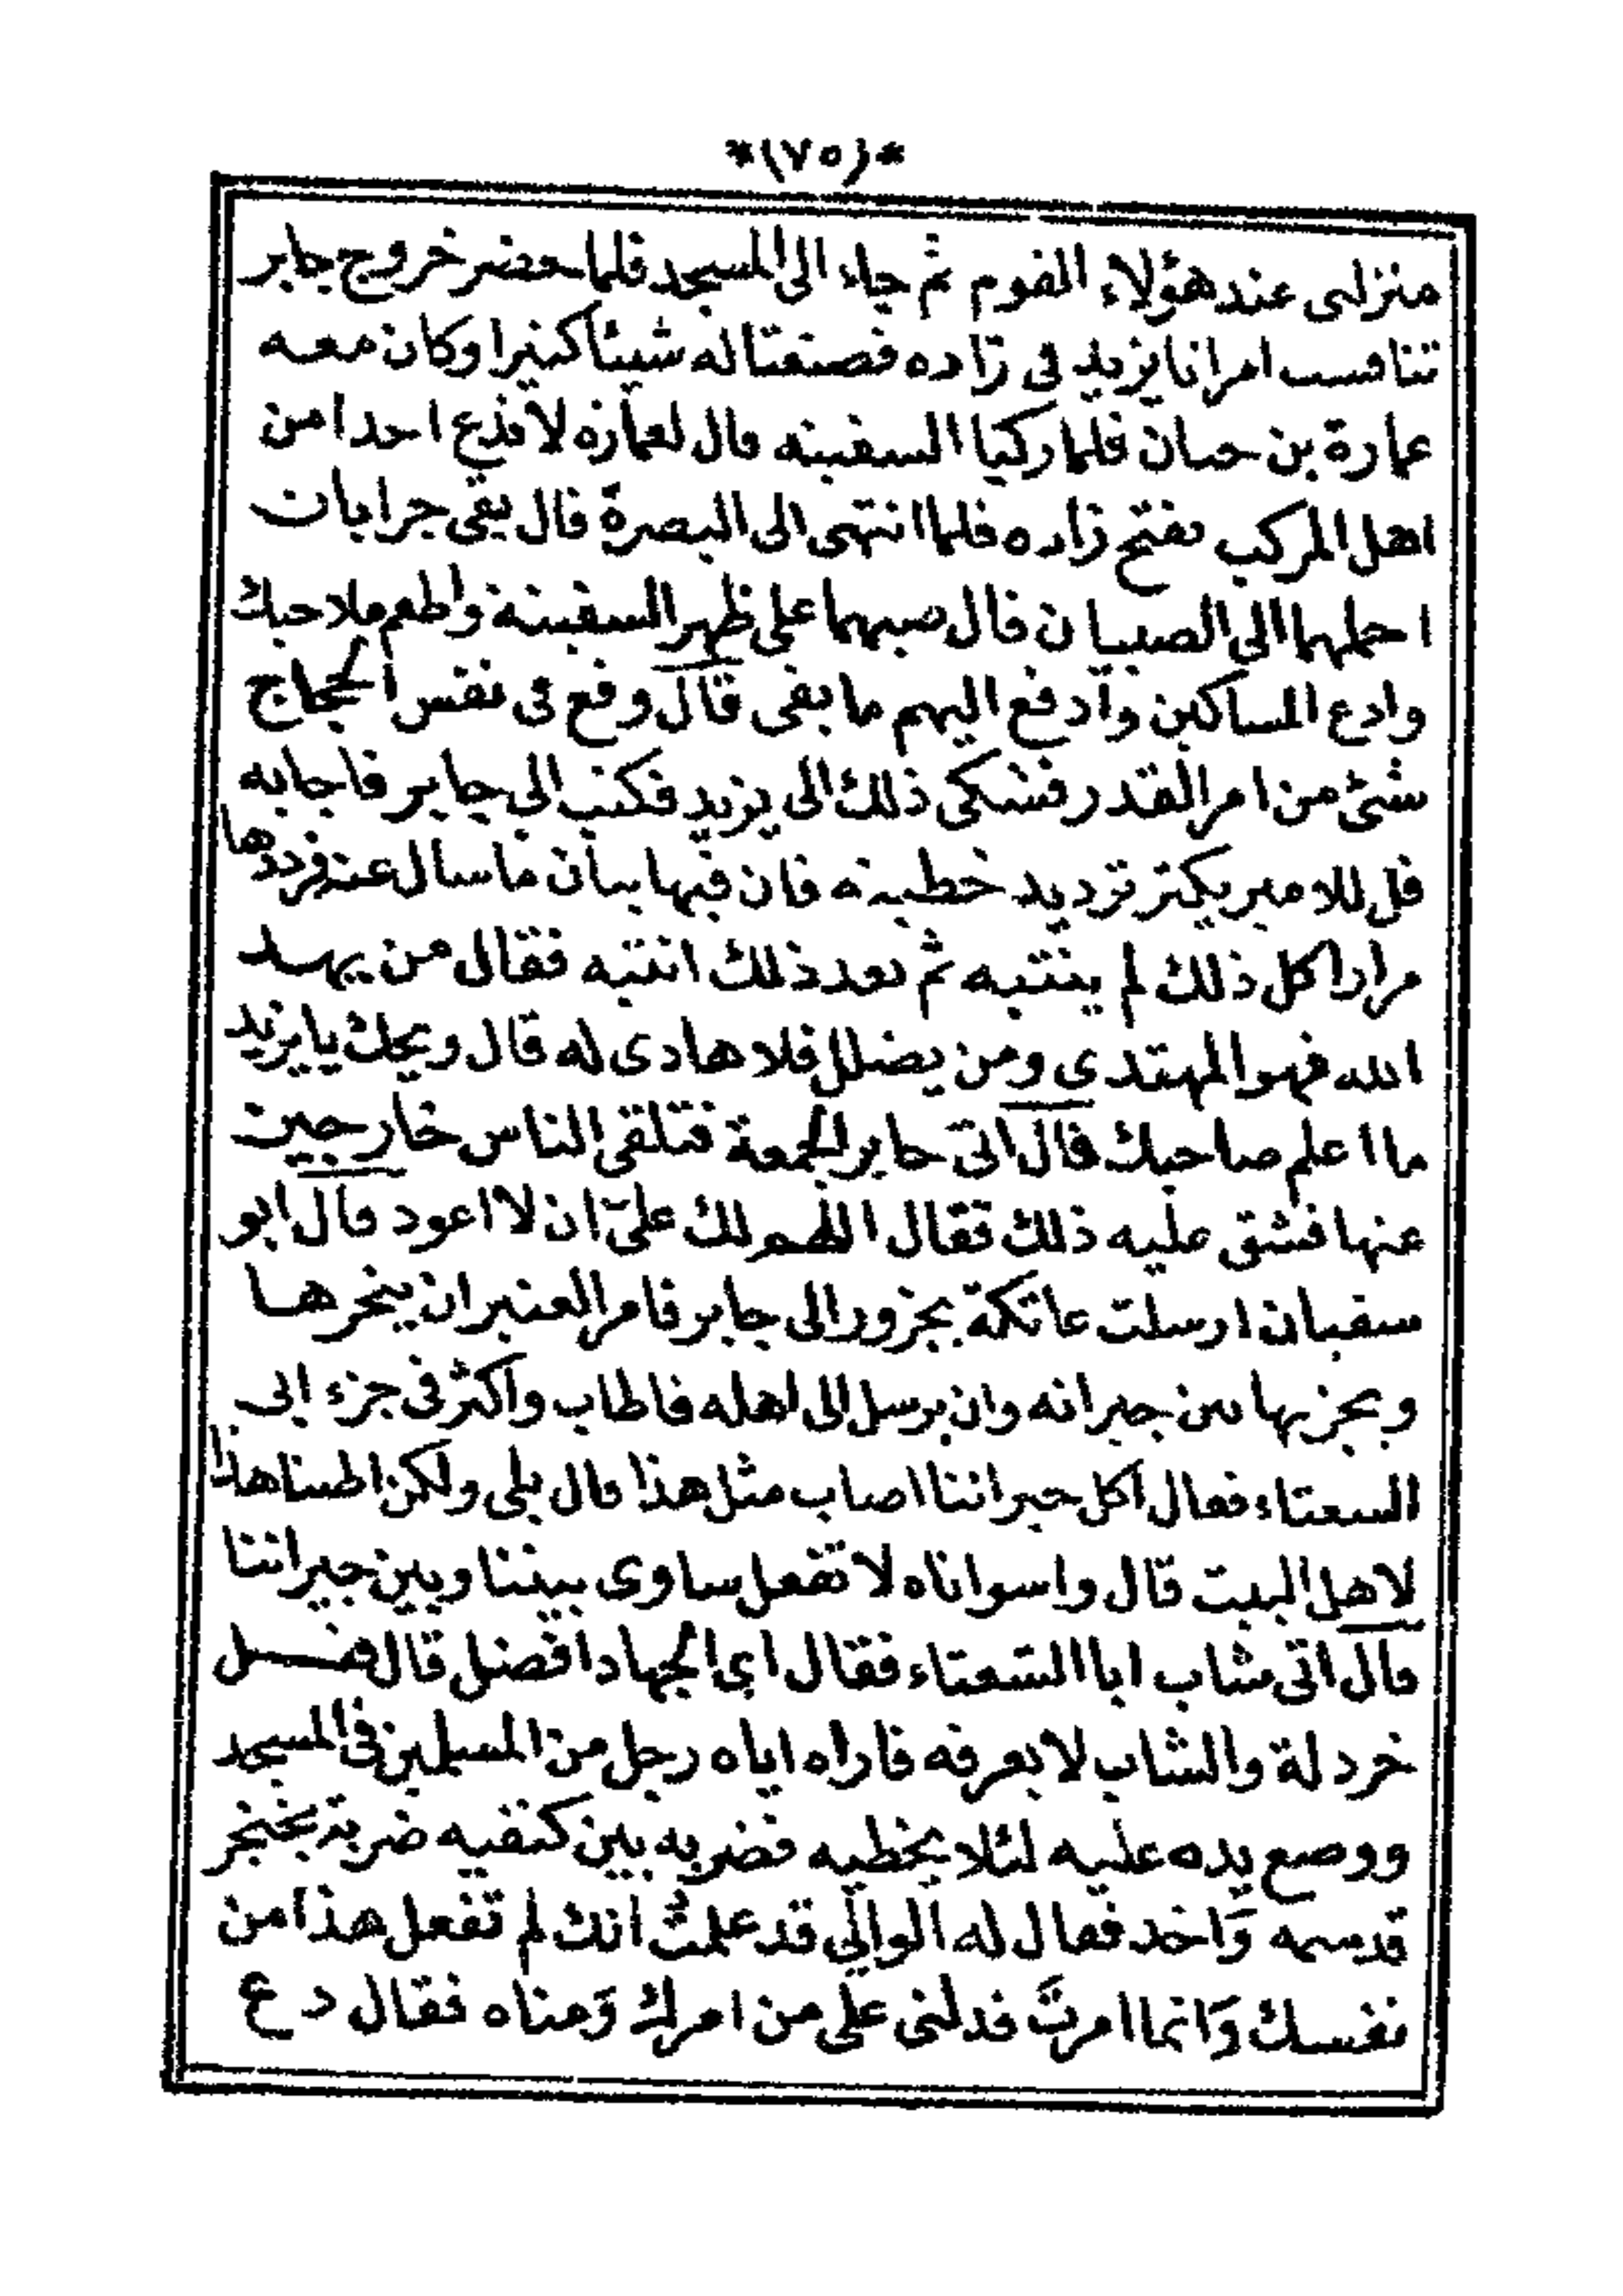 *(٧٥)*
منزلى عند هؤلاء القوم ثم جاء الى المسجد فلما حضر خروج جابر
تنافست امرانا يزيد فى زاده فصنعتا له شيئا كثيرا وكان معه
عمارة بن حسان فلما ركبا السفينه قال لعمارة لا تدع احدا من
اهل المركب يفتح زاده فلما انتهى الى البصرة قال بقى جرابان
احملهما الى الصبيان قال صبهما على ظهر السفينة واطعم ملاحيك
وادع المساكين وادفع اليهم ما بقى قال وقع فى نفس الحجاج
شئ من امر القدر فشكى ذلك الى يزيد فكتب الى جابر فاجابه
قل للامير يكثر ترديد خطبته فان فيها بيان ما سال عنه فرددها
مرارا كل ذلك لم ينتبه ثم بعد ذلك انتبه فقال من يهد
الله فهو المهتدى ومن يضلل فلا هادى له قال ويحك يا يزيد
ما اعلم صاحبك قال اتى جابر الجمعة فتلقى الناس خارجين
عنها فشق عليه ذلك فقال اللهم لك علىّ ان لا اعود قال ابو
سفيان ارسلت عاتكة بجزور الى جابر فامر العنبر ان ينحرها
ويجزيها بين جيرانه وان يرسل الى اهله فاطاب واكثر فى جزء ابى
الشعثاء فقال اكل جيراننا اصاب مثل هذا قال بلى ولكن اطبنا هذا
لاهل البيت قال واسواتاه لا تفعل ساوى بيننا وبين جيراننا
قال اتى شاب ابا الشعثاء فقال اى الجهاد افضل قال قتل
خردلة والشاب لا يعرفه فاراه اياه رجل من المسلمين فى المسجد
ووضع يده عليه لئلا يخطيه فضربه بين كتفيه ضربة بخنجر
قد سمه وَاخذ فقال له الوالى قد علمتُ انك لم تفعل هذا من
نفسك وَانما امرتَ فدلنى على من امرك وَمناه فقال دع